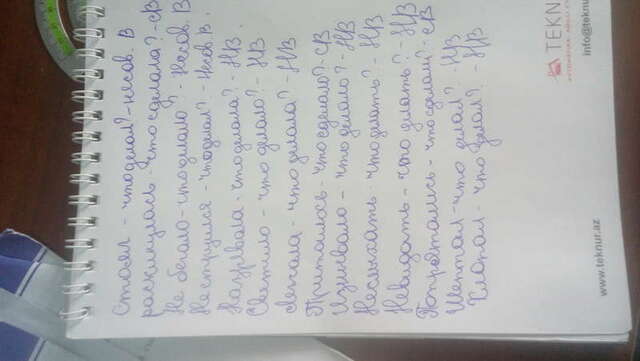 Стоял - что делал? - несов. В
раскинулась - что сделала? - СВ
Не бегало - что делало? - Несов. В
Не струился - что делал? - Несов. В.
Назревала - что делала? - НВ
Светило - что делало? - НВ
что делала? - НВ
Притаилось - что сделало? - СВ
Изнывало - что делало? - НВ
Неслыхать - что делать? - НВ
Невидать - что делать? - НВ
Попрятались - что сделали? - СВ
Шептал - что делал? - НВ
Хлопал - что делал? - НВ
TEKN
www.teknur.az
info@teknu